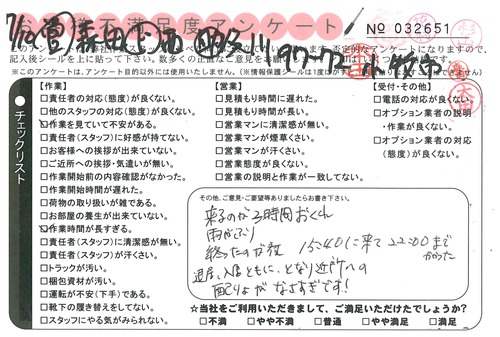 お客様不満足度アンケート
No 032651
記入後シールを上に貼って下さい。
※このアンケートは、アンケート目的以外には使用いたしません。
チェックリスト
【作業】
□責任者の対応(態度)が良くない。
□他のスタッフの対応(態度)が良くない。
□作業を見ていて不安がある。
□責任者(スタッフ)に好感が持てない。
□お客様への挨拶が出来ていない。
□ご近所への挨拶・気遣いが無い。
□作業開始前の内容確認がなかった。
□作業開始時間が遅れた。
□荷物の取り扱いが雑である。
□お部屋の養生が出来ていない。
□作業時間が長すぎる。
□責任者(スタッフ)に清潔感が無い。
□責任者(スタッフ)が汗くさい。
□トラックが汚い。
□梱包資材が汚い。
□運転が不安(下手)である。
□靴下の履き替えをしてない。
□スタッフにやる気がみられない。
【営業】
□見積もり時間に遅れた。
□見積もり時間が長い。
□営業マンに清潔感が無い。
□営業マンが煙草くさい。
□営業マンが汗くさい。
□営業態度が良くない。
□営業の説明と作業が一致してない。
【受付・その他】
□電話の対応が良くない。
□オプション業者の説明
・作業が良くない。
□オプション業者の対応
(態度)が良くない。
その他、ご意見・ご要望等ありましたらお書き下さい。
来るのが3時間おくれ
雨がふり
終ったのが夜 15:40に来て 22:00まで
かかった
退居、入居ともに、となり近所への
配りょがなさすぎです!
☆当社をご利用いただきまして、ご満足いただけたでしょうか?
□不満 □やや不満 □普通 □やや満足 □満足